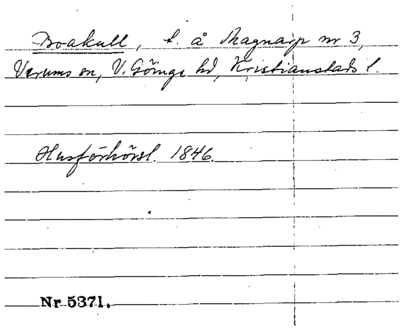 Boakull, t. å Skagnarp nr 3,
Verums sn, V. Göinge hd, Kristianstads l.
Husförhörsl. 1846.
Nr 5371.